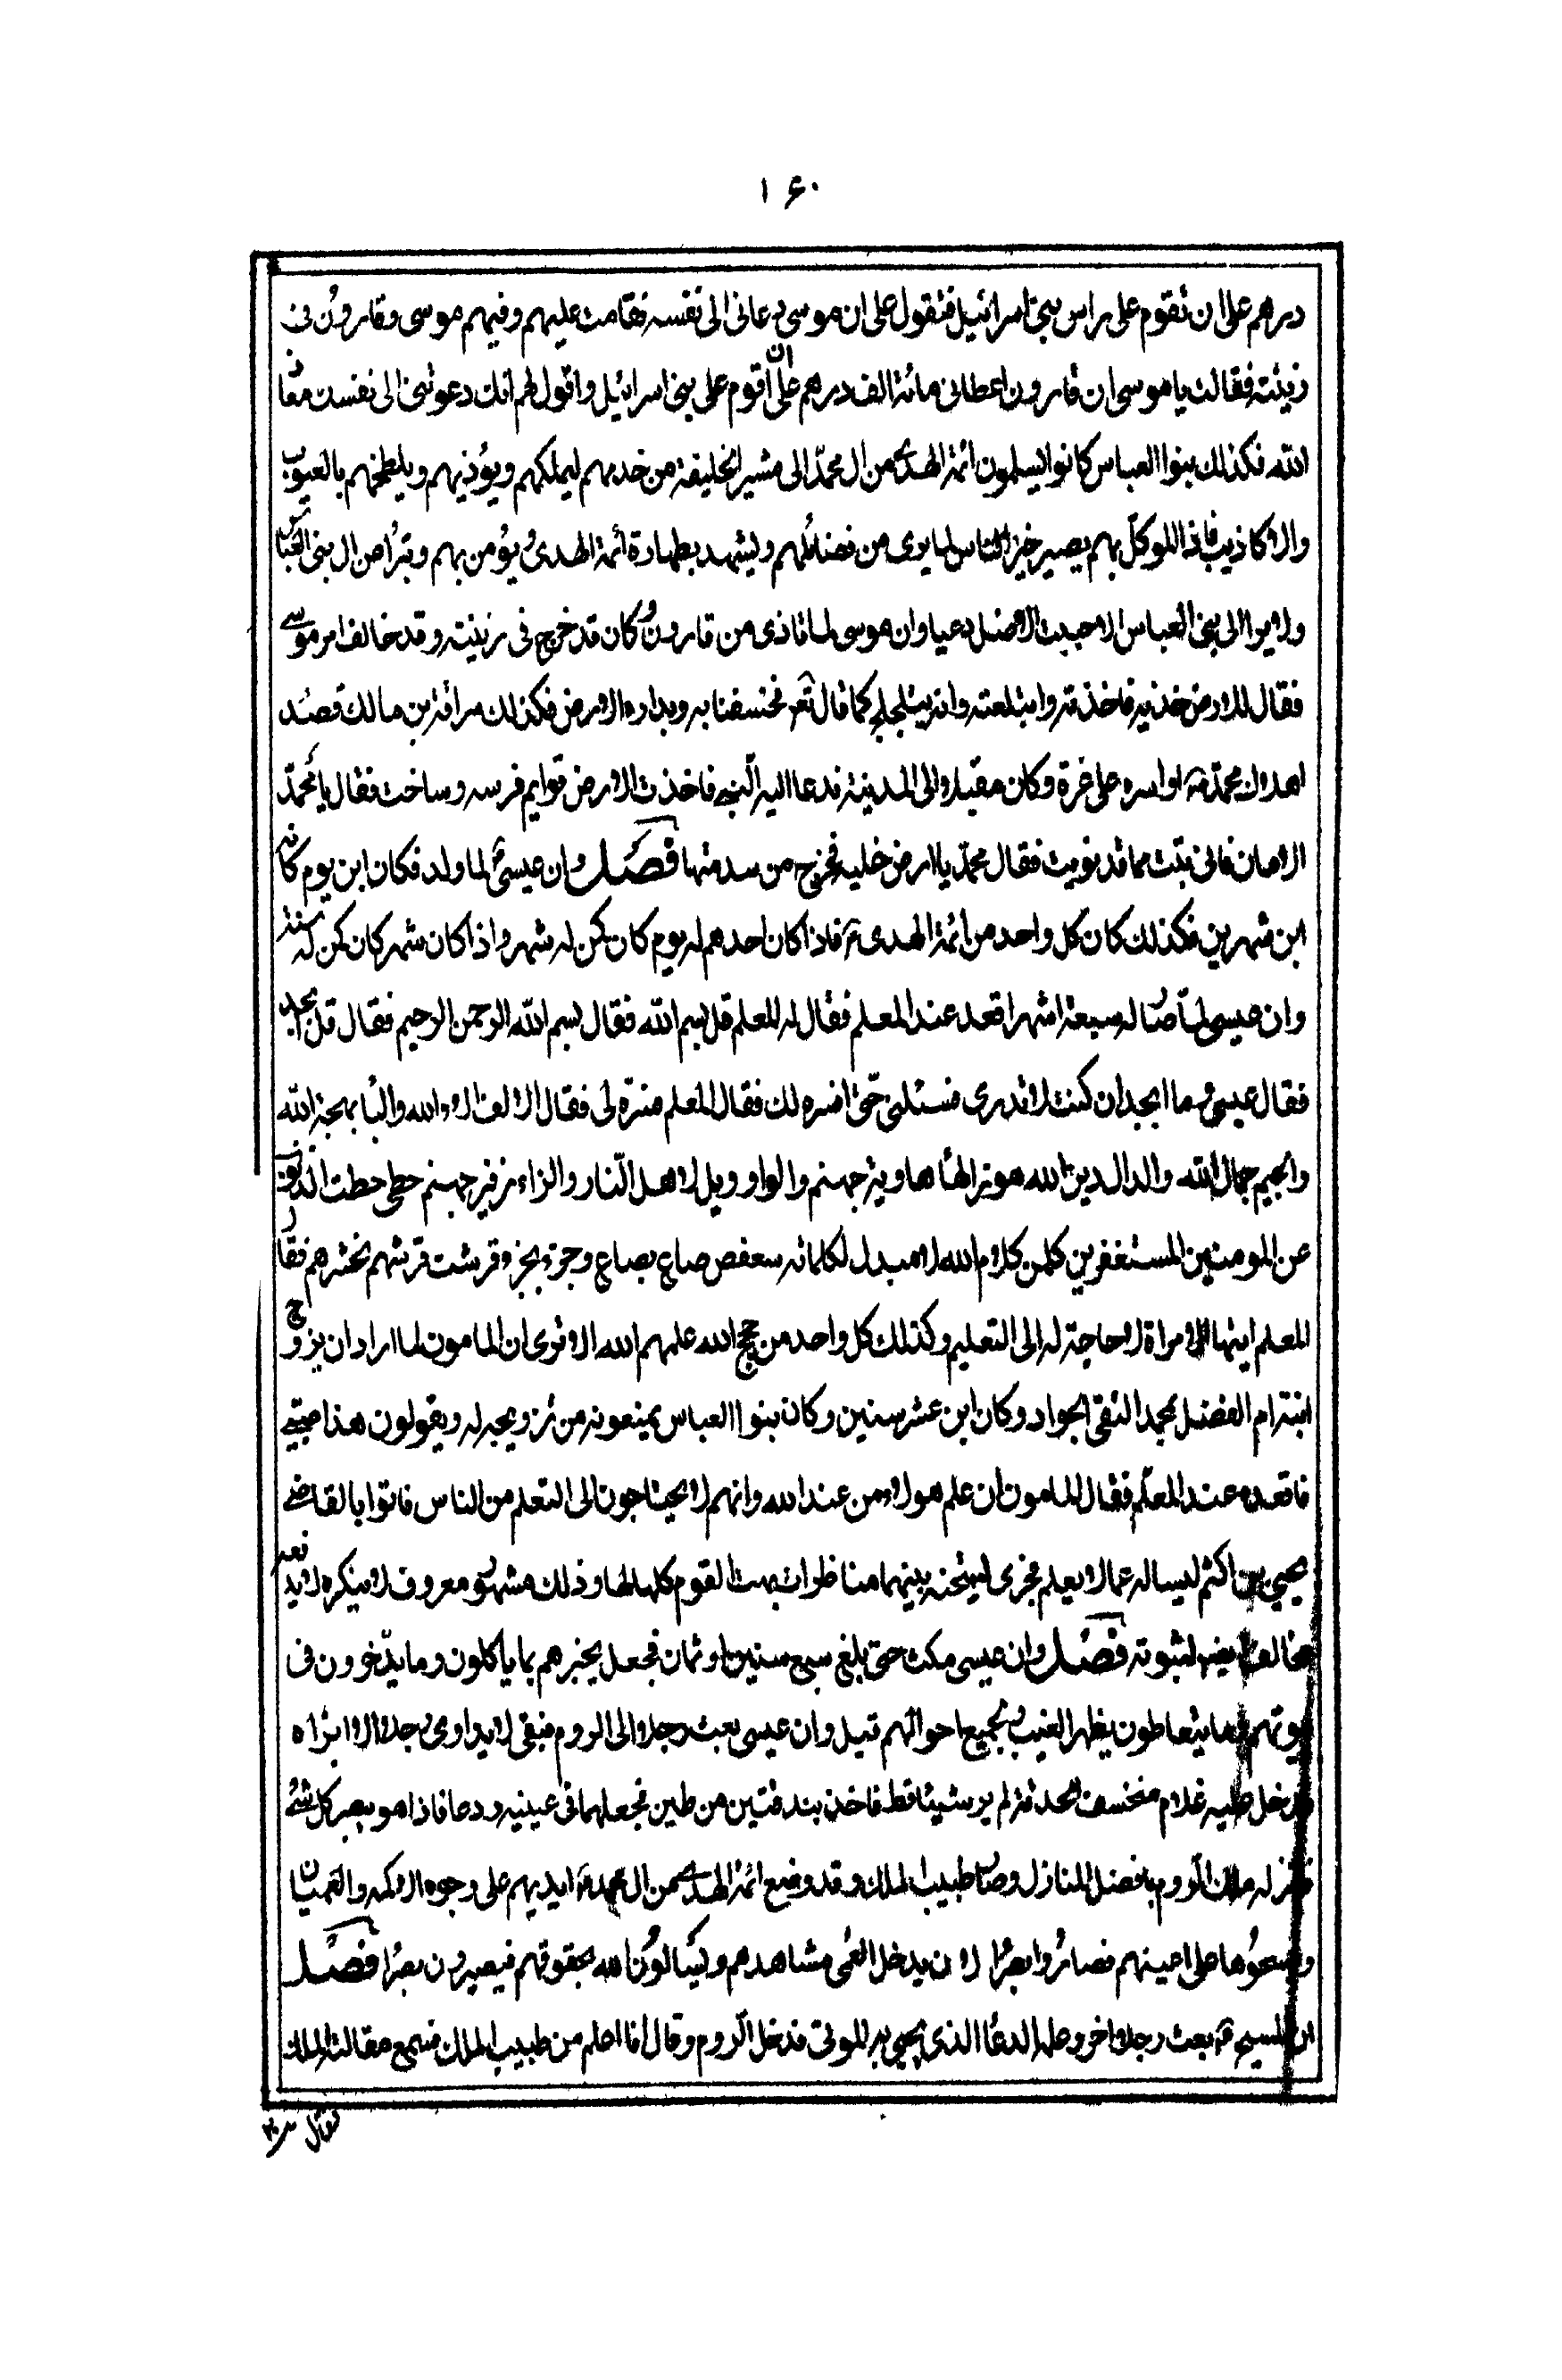 ۱۶۰
درهم على ان تقوم على راس بنى اسرائيل فتقول على ان موسى دعانى الى نفسه فقامت عليهم وفيهم موسى وقارون فى
زينته فقالت يا موسى ان قارون اعطانى مائة الف درهم على ان اقوم على بنى اسرائيل واقول لهم انك دعوتنى الى نفسك معاذ
الله فكذلك بنوا العباس كانوا يسلمون ائمة الهدى من ال محمد الى مشير الخليفة من خدمهم ليملكهم ويؤذيهم ويلطخهم بالعيوب
والاكاذيب فاذا الموكل بهم يصير خير الناس لما يرى من فضائلهم وليشهد بطهارة أئمة الهدى ويؤمن بهم وتبرأ من ال بنى العباس
ولا يرا الى بنى العباس الا وان موسى لما تاذى من قارون وكان قد خرج فى زينته وقد خالف امر موسى
فقال للارض خذيه فاخذته وابتلعته وانه يتجلجل كما قال تعر فخسفنا به وبداره الارض فكذلك سراقة بن مالك قصد
اهلاك محمد ص او اسره على غرة وكان مقبلا الى المدينة فدعا اليه النبى فاخذت الارض قوايم فرسه وساخت فقال يا محمد
الامان فانى تبت مما قد نويت فقال محمد يا ارض خليه فخرج من سدمتها فصل وان عيسى لما ولد فكان ابن يوم كانه
ابن شهرين فكذلك كان كل واحد من أئمة الهدى ع فاذا كان احدهم له يوم كان كمن له شهر واذا كان شهر كان كمن له سنة
وان عيسى لما صار له سبعة اشهر اقعد عند المعلم فقال له المعلم قل بسم الله فقال بسم الله الرحمن الرحيم فقال قل ابجد
فقال عيسى وما ابجد ان كنت لا تدرى فسئلنى حتى افسره لك فقال المعلم فسره لى فقال الالف الاء الله والبا بهجة الله
والجيم جمال الله والدال دين الله هوز الها هاوية جهنم والواو ويل لاهل النار والزاء زفير جهنم حطى حطت الذنوب
عن المومنين المستغفرين كلمن كلام الله لا مبدل لكلماته سعفص صاع بصاع وجزء بجزء قرشت قرشهم فحشرهم فقال
المعلم ايتها الامراة لا حاجة له الى التعليم وكذلك كل واحد من حجج الله عليهم الله الا ترى ان المامون لما اراد ان يزوج
ابنته ام الفضل محمد التقى الجواد وكان ابن عشر سنين وكان بنوا العباس يمنعونه من تزويجه له ويقولون هذا صبى
فاقعده عند المعلم فقال المامون ان علم هولاء من عند الله وانهم لا يحتاجون الى التعلم من الناس فاتوا بالقاضى
يحيى بن اكثم ليساله عما لا يعلم فجرى ليمتحنه بينهما مناظرات بهت القوم كلها لها وذلك مشهور معروف لا ينكره لا يدفعه
مخالف لثبوته فصل وان عيسى مكث حتى بلغ سبع سنين او ثمان فجعل يخبرهم بما ياكلون وما يدخرون فى
بيوتهم يتعاطون يظهر الغيب وبجميع احوالهم قيل وان عيسى بعث رجلا الى الروم فبقى لا يداوى رجلا الا ابراه
فدخل عليه غلام منخسف الحدقة لم ير شيئا قط فاخذ بندقتين من طين فجعلهما فى عينيه ودعا فاذا هو يبصر كل شئ
فنزله ملك الروم بافضل المنازل وصار طبيب الملك وقد وضع ائمة الهدى من ال محمد ع ايديهم على وجوه الاكمه والعميان
ومسحوها على اعينهم فصاروا بصراء لان يدخل العمى مشاهدهم ويسالون الله بحقوقهم فيصيرون بصراء فصل
ان المسيح ع بعث رجلا اخر وعلمه الدعا الذى يحيى به الموتى فدخل الروم وقال انا اعلم من طبيب الملك فسمع مقالته الملك